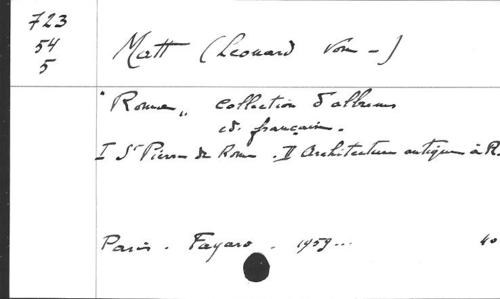 723
54
5
Matt (Léonard Von –)
"Rome„ collection d'albums
éd. française.
I St Pierre de Rome. II Architecture antique à R.
Paris. Fayard. 1959...
40